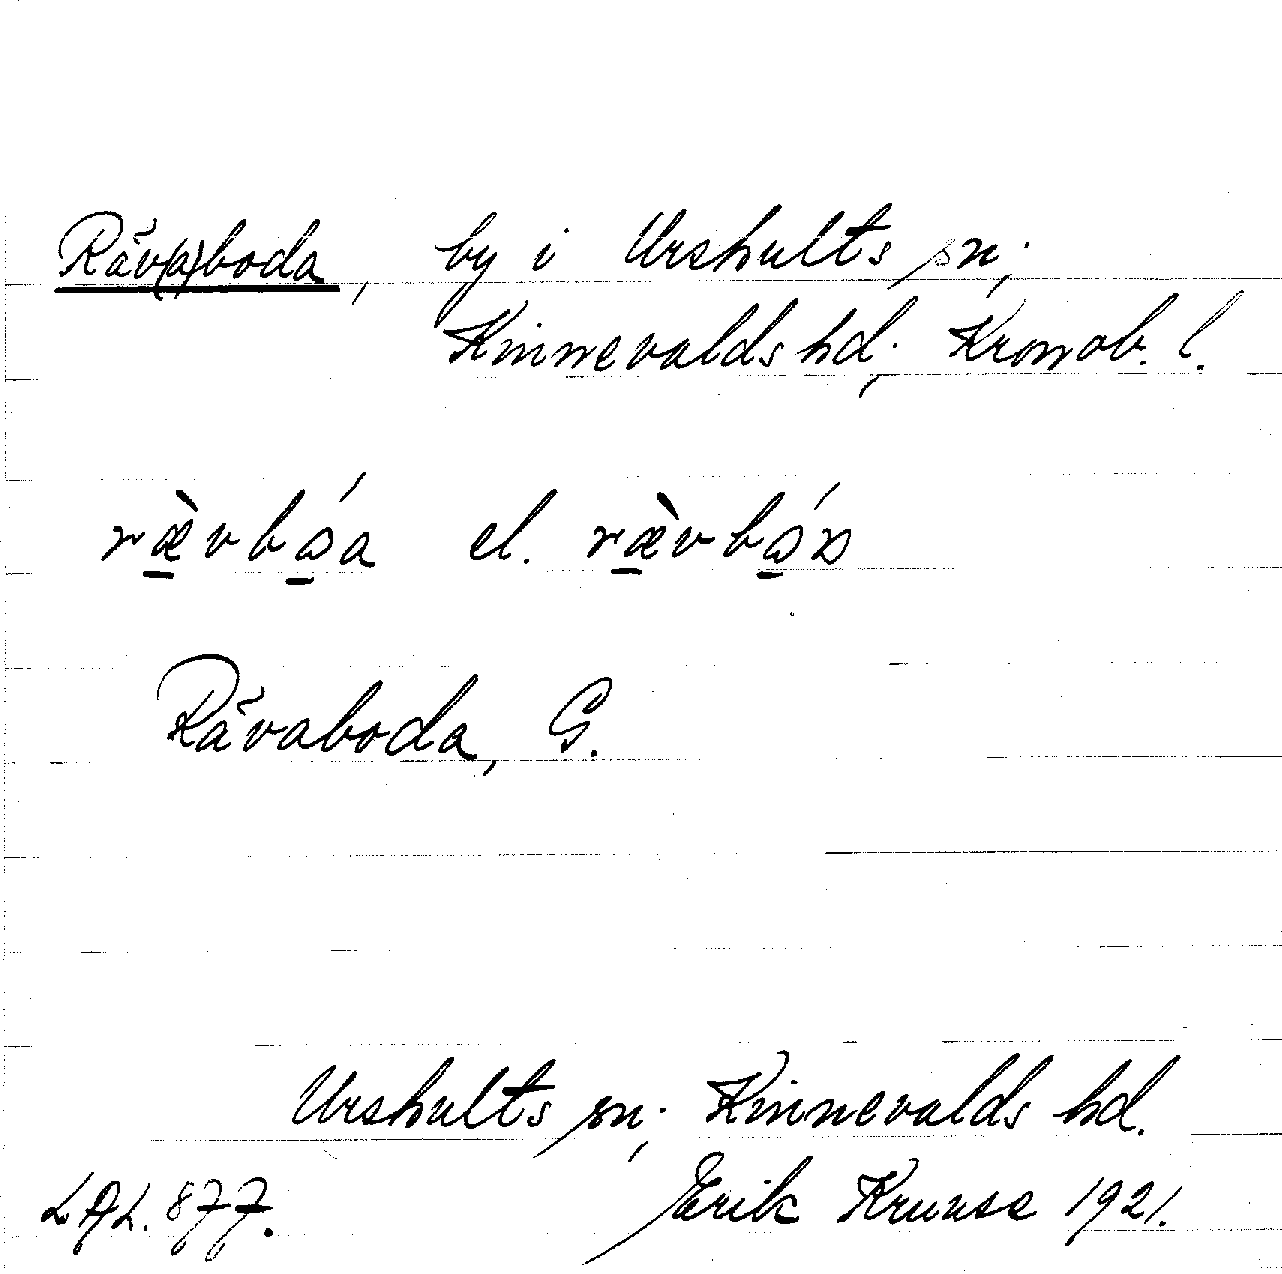 Räv(a)boda, by i Urshults sn;
Kinnevalds hd; Kronob. l.
ræ̀vbɷ́a el. ræ̀vbɷ́
Rävaboda, G.
Urshults sn; Kinnevalds hd.
LAL. 877. Erik Kruuse 1921.